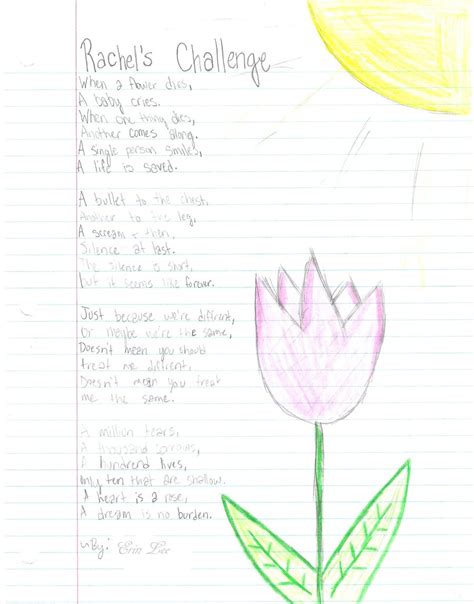 Rachel's Challenge
When a flower dies,
A baby cries.
When one thing dies,
Another comes along.
A single person smiles,
A life is saved.
A bullet to the chest,
Another to the leg,
A scream + then,
Silence at last.
The silence is short,
but it seems like forever.
Just because we're diffrent,
Or maybe we're the same,
Doesn't mean you should
treat me diffrent.
Doesn't mean you treat
me the same.
A million tears,
A thousand sprouts,
A hundrend lives,
only ten that are shallow.
A heart is a rose,
A dream is no burden.
~By: Erin Lee